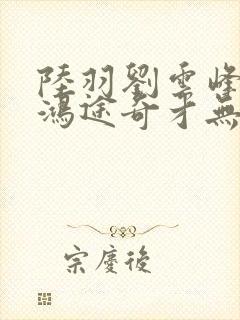 陸羽劉雲峰
鴻途奇才無
宗慶後